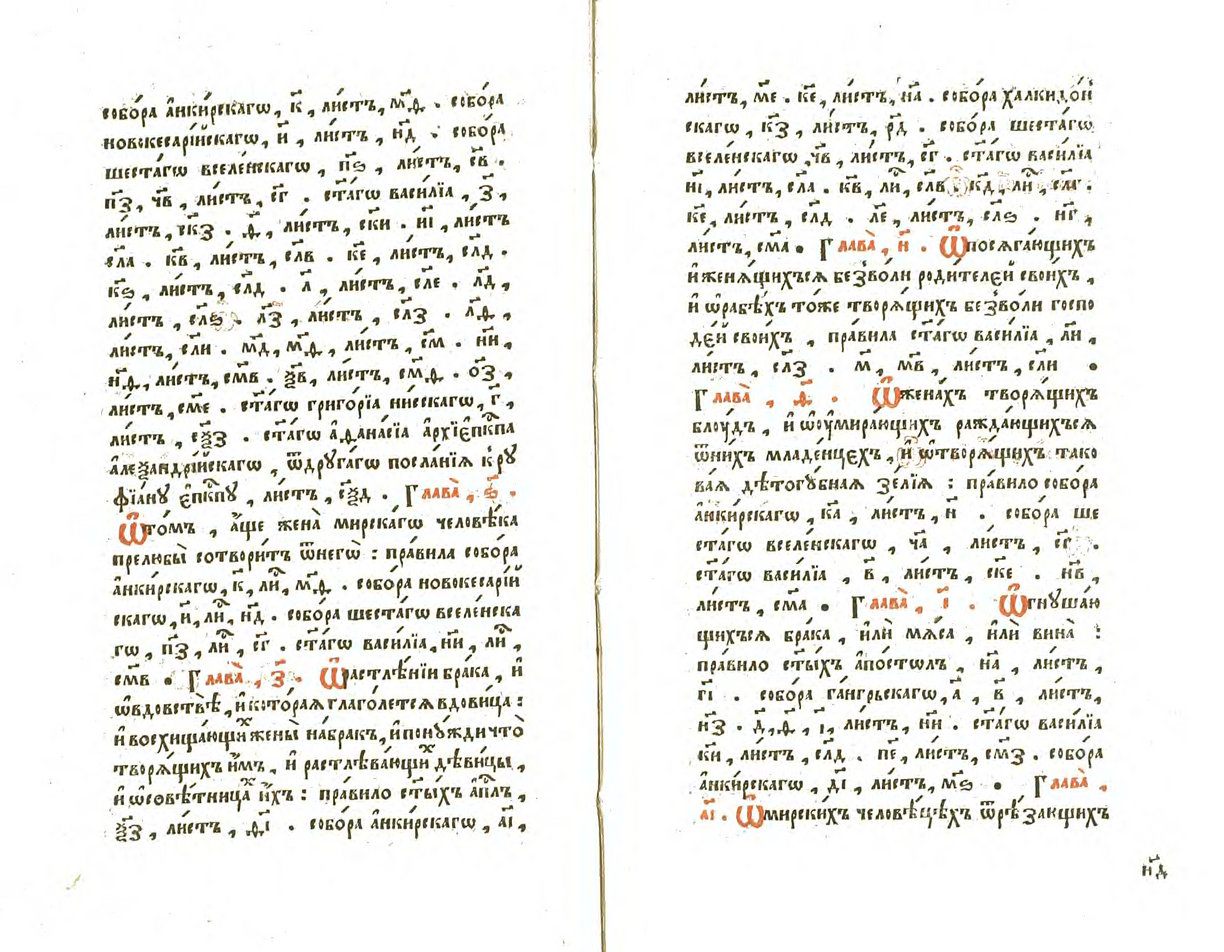 собо́ра а҆нки́рскагѡ, к҃, ли́стъ, м҃ѳ. собо́ра
новокесарі́йскагѡ, и҃, ли́стъ, н҃д. собо́ра
шеста́гѡ вселе́нскагѡ, п҃ѕ, ли́стъ, с҃в.
п҃з, ч҃в, ли́стъ, с҃г. ст҃а́гѡ васи́лїа, з҃,
ли́стъ, с҃кз. ѳ҃, ли́стъ, с҃ки. и҃і, ли́стъ
с҃ла. к҃в, ли́стъ, с҃лв. к҃е, ли́стъ, с҃лд.
к҃ѕ, ли́стъ, с҃лд. л҃, ли́стъ, с҃ле. л҃д,
ли́стъ, с҃лѕ. л҃з, ли́стъ, с҃лз. л҃ѳ,
ли́стъ, с҃ли. м҃д, м҃ѳ, ли́стъ, с҃м. н҃и,
н҃ѳ, ли́стъ, с҃мв. ѯ҃в, ли́стъ, с҃мѳ. о҃з,
ли́стъ, с҃ме. ст҃а́гѡ григо́рїа ни́сскагѡ, г҃,
ли́стъ, с҃ѯз. ст҃а́гѡ а҆ѳана́сїа а҆рхїепⷭ҇кпа
а҆леѯандрі́йскагѡ, ѿдруга́гѡ посла́нїѧ к̾рꙋ
фїа́нꙋ є҆пⷭ҇кпꙋ, ли́стъ, с҃ѯд. Глава̀, ѕ҃.
Ѡ҆то́мъ, а҆́ще жена̀ мирска́гѡ человѣ́ка
прелюбы̀ сотвори́тъ ѿнегѡ̀: пра́вила собо́ра
а҆нки́рскагѡ, к҃, лиⷭ҇, м҃ѳ. собо́ра новокесарі́й
скагѡ, и҃, лиⷭ҇, н҃д. собо́ра шеста́гѡ вселе́нска
гѡ, п҃з, лиⷭ҇, с҃г. ст҃а́гѡ васи́лїа, н҃и, лиⷭ҇,
с҃мв. Глава̀, з҃. Ѡ҆растлѣ́нїи бра́ка, и҆
ѡ҆вдовствѣ̀, и҆кото́раѧ глаго́летсѧ вдови́ца:
и҆ восхища́ющиⷯ жены̀ на́бракъ, и҆пону́жди что̀
творѧ́щихъ и҆̀мъ, и҆ растлѣва́ющиⷯ дѣви́цы,
и҆ ѡ҆совѣ́тницаⷯ и҆́хъ: пра́вило ст҃ы́хъ а҆пⷭ҇лъ,
ѯ҃з, ли́стъ, ѳ҃і. собо́ра а҆нки́рскагѡ, а҃і,
ли́стъ, м҃е. к҃е, ли́стъ, н҃а. собо́ра халкидо́н
скагѡ, к҃з, ли́стъ, р҃д. собо́ра шеста́гѡ
вселе́нскагѡ, ч҃в, ли́стъ, с҃г. ст҃а́гѡ васи́лїа
и҃і, ли́стъ, с҃ла. к҃в, лиⷭ҇, с҃лв. к҃д, лиⷭ҇, с҃лг.
к҃е, ли́стъ, с҃лд. л҃е, ли́стъ, с҃лѕ. н҃г,
ли́стъ, с҃ма. Глава̀, и҃. Ѡ҆посѧга́ющихъ
и҆ женѧ́щихъсѧ без̾во́ли роди́телей свои́хъ,
и҆ ѡ҆рабѣ́хъ то́же творѧ́щихъ без̾во́ли госпо
де́й свои́хъ, пра́вила ст҃а́гѡ васи́лїа, л҃и,
ли́стъ, с҃лз. м҃, м҃в, ли́стъ, с҃ли.
Глава̀, ѳ҃. Ѡ҆жена́хъ творѧ́щихъ
блоу́дъ, и҆ ѡ҆оу҆мира́ющихъ ражда́ющихъсѧ
ѿни́хъ младе́нцехъ, и҆ ѡ҆творѧ́щихъ тако
ва́ѧ дѣтогу́бнаѧ зе́лїѧ: пра́вило собо́ра
а҆нки́рскагѡ, к҃а, ли́стъ, н҃. собо́ра ше
ста́гѡ вселе́нскагѡ, ч҃а, ли́стъ, с҃г.
ст҃а́гѡ васи́лїа, в҃, ли́стъ, с҃ке. н҃в,
ли́стъ, с҃ма. Глава̀, і҃. Ѡ҆гнꙋша́ю
щихъсѧ бра́ка, и҆лѝ мѧ́са, и҆лѝ вина̀:
пра́вило ст҃ы́хъ а҆по́столъ, н҃а, ли́стъ,
г҃і. собо́ра га́нгрьскагѡ, а҃, в҃, ли́стъ,
н҃з. д҃, ѳ҃, і҃, ли́стъ, н҃и. ст҃а́гѡ васи́лїа
к҃и, ли́стъ, с҃лд. п҃е, ли́стъ, с҃мз. собо́ра
а҆нки́рскагѡ, д҃і, ли́стъ, м҃ѕ. Глава̀,
а҃і. Ѡ҆мирски́хъ человѣ́цѣхъ ѿрѣ́зающихъ
н҃д